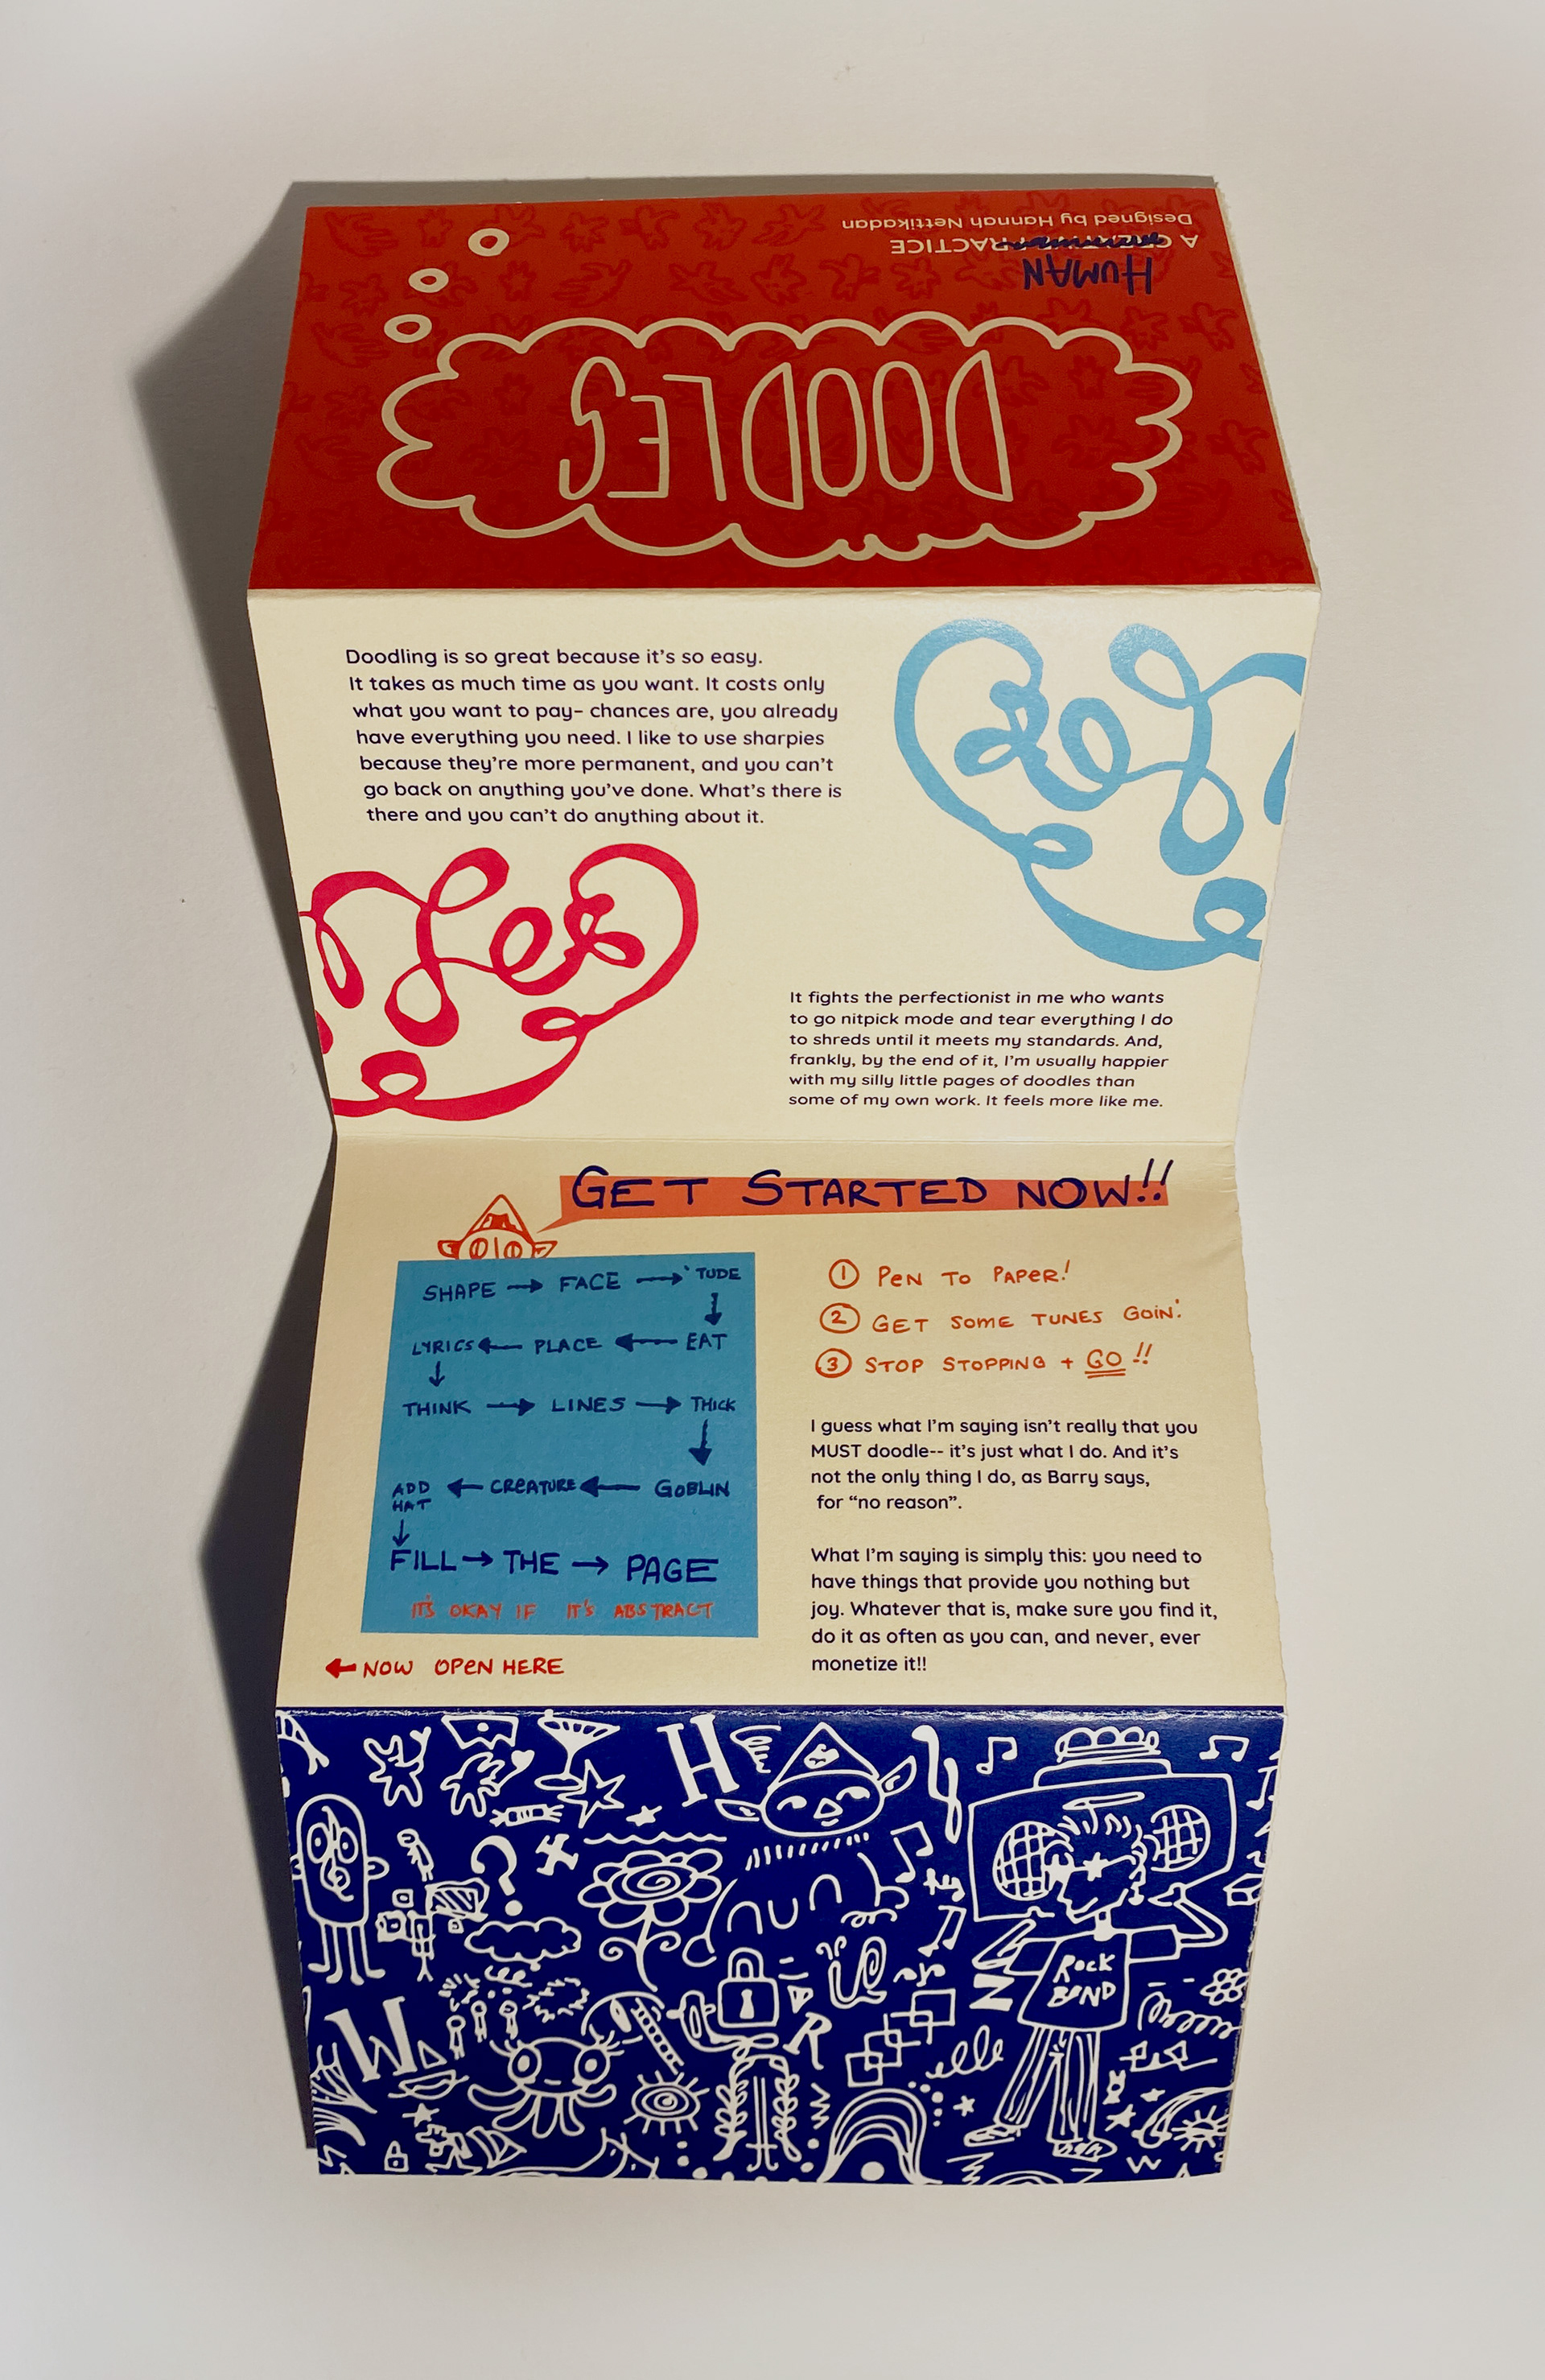 DOODLES
HUMAN
A PRACTICE
Designed by Hannah Nettikadan
Doodling is so great because it's so easy.
It takes as much time as you want. It costs only
what you want to pay– chances are, you already
have everything you need. I like to use sharpies
because they're more permanent, and you can't
go back on anything you've done. What's there is
there and you can't do anything about it.
It fights the perfectionist in me who wants
to go nitpick mode and tear everything I do
to shreds until it meets my standards. And,
frankly, by the end of it, I'm usually happier
with my silly little pages of doodles than
some of my own work. It feels more like me.
GET STARTED NOW!!
SHAPE → FACE → 'TUDE
LYRICS ← PLACE ← EAT
THINK → LINES → THICK
ADD HAT ← CREATURE ← GOBLIN
FILL → THE → PAGE
IT'S OKAY IF IT'S ABSTRACT
← NOW OPEN HERE
① PEN TO PAPER!
② GET SOME TUNES GOIN'.
③ STOP STOPPING + GO!!
I guess what I'm saying isn't really that you
MUST doodle-- it's just what I do. And it's
not the only thing I do, as Barry says,
for “no reason”.
What I'm saying is simply this: you need to
have things that provide you nothing but
joy. Whatever that is, make sure you find it,
do it as often as you can, and never, ever
monetize it!!
H
?
W
R
Z
ROCK
BAND